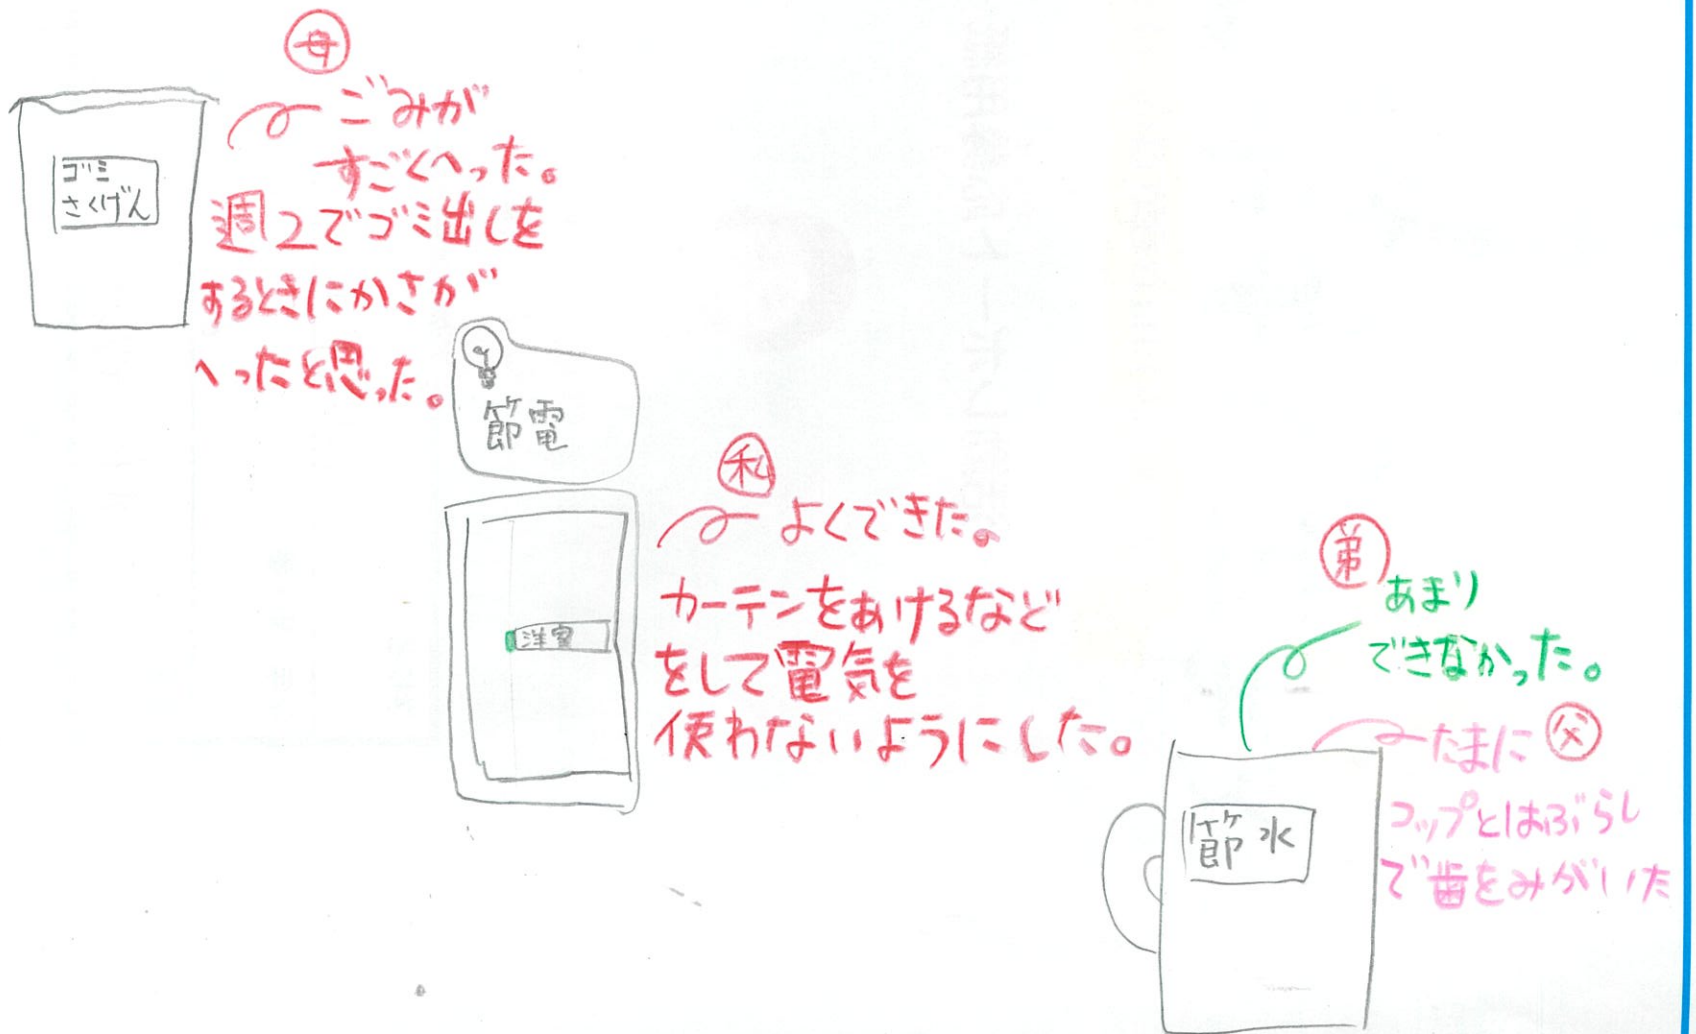 母
ごみが
すごくへった。
週2でゴミ出しを
するときにかさが
へったと思った。
ゴミ
さくげん
節電
私
よくできた。
カーテンをあけるなど
をして電気を
使わないようにした。
洋室
弟
あまり
できなかった。
父
たまに
コップとはぶらし
で歯をみがいた
節水